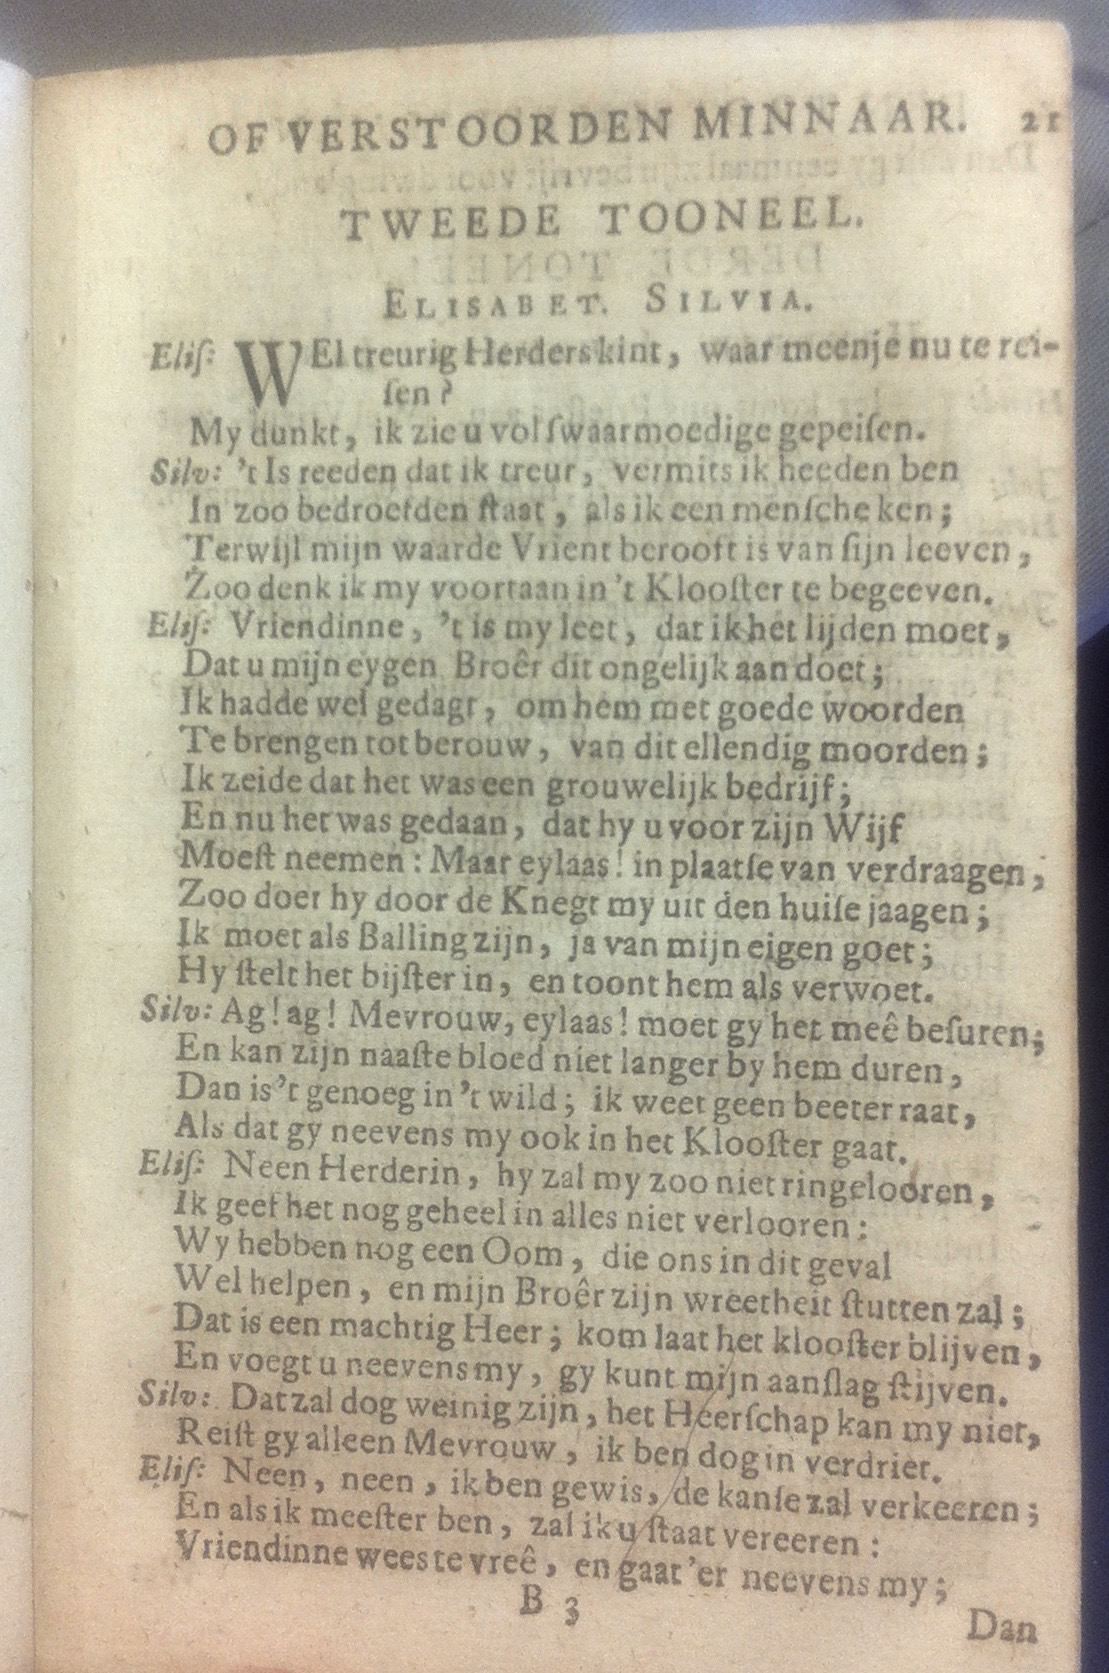 OF VERSTOORDEN MINNAAR. 21
TWEEDE TOONEEL.
ELISABET. SILVIA.
Eliſ: WEl treurig Herderskint, waar meenje nu te rei-
ſen?
My dunkt, ik zie u vol ſwaarmoedige gepeiſen.
Silv: 't Is reeden dat ik treur, vermits ik heeden ben
In zoo bedroefden ſtaat, als ik een menſche ken;
Terwijl mijn waarde Vrient berooft is van ſijn leeven,
Zoo denk ik my voortaan in 't Klooſter te begeeven.
Eliſ: Vriendinne, 't is my leet, dat ik het lijden moet,
Dat u mijn eygen Broêr dit ongelijk aan doet;
Ik hadde wel gedagt, om hem met goede woorden
Te brengen tot berouw, van dit ellendig moorden;
Ik zeide dat het was een grouwelijk bedrijf;
En nu het was gedaan, dat hy u voor zijn Wijf
Moeſt neemen: Maar eylaas! in plaatſe van verdraagen,
Zoo doet hy door de Knegt my uit den huiſe jaagen;
Ik moet als Balling zijn, ja van mijn eigen goet;
Hy ſtelt het bijſter in, en toont hem als verwoet.
Silv: Ag! ag! Mevrouw, eylaas! moet gy het meê beſuren;
En kan zijn naaſte bloed niet langer by hem duren,
Dan is 't genoeg in 't wild; ik weet geen beeter raat,
Als dat gy neevens my ook in het Klooſter gaat.
Eliſ: Neen Herderin, hy zal my zoo niet ringelooren,
Ik geef het nog geheel in alles niet verlooren:
Wy hebben nog een Oom, die ons in dit geval
Wel helpen, en mijn Broêr zijn wreetheit ſtutten zal;
Dat is een machtig Heer; kom laat het klooſter blijven,
En voegt u neevens my, gy kunt mijn aanſlag ſtijven.
Silv: Dat zal dog weinig zijn, het Heerſchap kan my niet,
Reiſt gy alleen Mevrouw, ik ben dog in verdriet.
Eliſ: Neen, neen, ik ben gewis, de kanſe zal verkeeren;
En als ik meeſter ben, zal ik u ſtaat vereeren:
Vriendinne wees te vreê, en gaat 'er neevens my;
B 3
Dan